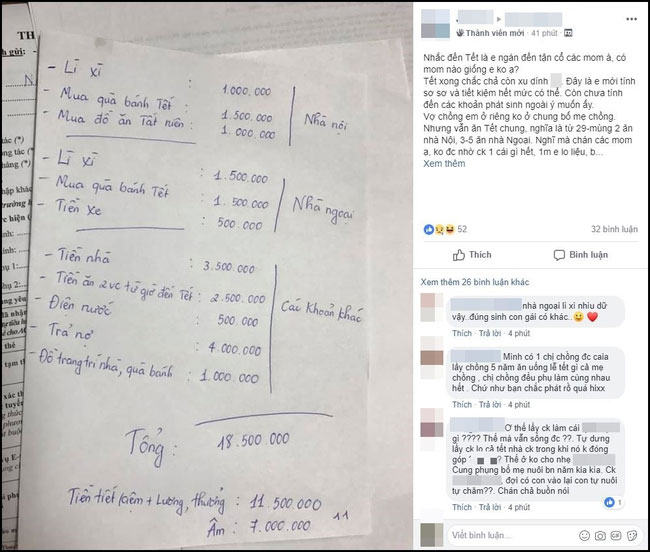 - Lì xì : 1.000.000
- Mua quà bánh Tết : 1.500.000
- Mua đồ ăn Tất niên : 1.000.000
Nhà nội
- Lì xì : 1.500.000
- Mua quà bánh Tết : 1.500.000
- Tiền xe : 500.000
Nhà ngoại
- Tiền nhà : 3.500.000
- Tiền ăn 2vc từ giờ đến Tết : 2.500.000
- Điện nước : 500.000
- Trả nợ : 4.000.000
- Đồ trang trí nhà, quà bánh : 1.000.000
Các khoản khác
Tổng : 18.500.000
Tiền tiết kiệm + Lương, thưởng : 11.500.000
Âm : 7.000.000
Thành viên mới · 41 phút ·
Nhắc đến Tết là e ngán đến tận cổ các mom à, có
mom nào giống e ko ạ?
Tết xong chắc chả còn xu dính . Đây là e mới tính
sơ sơ và tiết kiệm hết mức có thể. Còn chưa tính
đến các khoản phát sinh ngoài ý muốn ấy.
Vợ chồng em ở riêng ko ở chung bố mẹ chồng.
Nhưng vẫn ăn Tết chung, nghĩa là từ 29-mùng 2 ăn
nhà Nội, 3-5 ăn nhà Ngoại. Nghĩ mà chán các mom
ạ, ko đc nhờ ck 1 cái gì hết, 1m e lo liệu, b...
Xem thêm
52
32 bình luận
Thích
Bình luận
Xem thêm 26 bình luận khác
nhà ngoại lì xì nhiu dữ
vậy..đúng sinh con gái có khác..
Thích · Trả lời · 4 phút
Mình có 1 chị chồng đc caia
lấy chồng 5 năm ăn uống lễ tết gì cả mẹ
chồng , chị chồng đều phụ làm cùng nhau
hết . Chứ như bạn chắc phát rồ quá hixx
Thích · Trả lời · 4 phút
Ơ thế lấy ck làm cái
gì ???? Thế mà vẫn sống đc ??. Tự dưng
lấy ck lo cả tết nhà ck trong khi nó k đóng
góp ? Thế ở ko cho nhẹ
Cung phụng bố mẹ nuôi bn năm kia kìa. Ck
, đợi có con vào lại con tự nuôi
tự chăm??. Chán chả buồn nói
1
Thích · Trả lời · 4 phút
Viết bình luận...